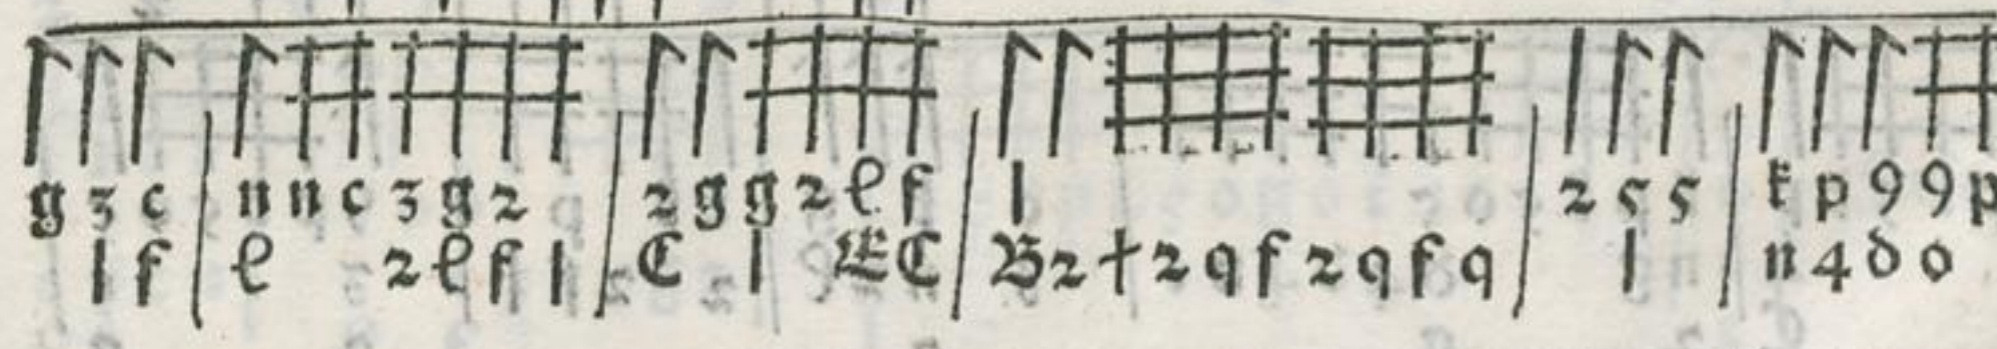 g 3 c | n n c 3 g 2 | 2 g g 2 e f | l | 2 5 5 | k p 9 9 p
l f | e 2 e f l | C l E C | B 2 † 2 q f 2 q f q | l | n 4 d o